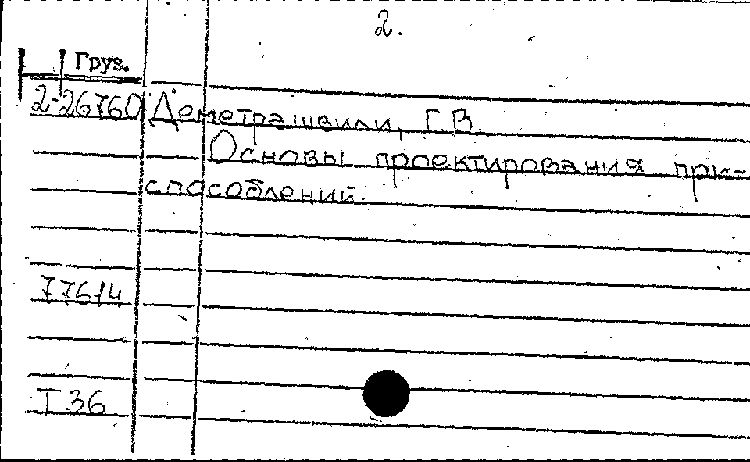 2.
Груз.
2-26760 Деметрашвили, Г.В.
Основы проектирования при-
способлений.
77614
Т 36